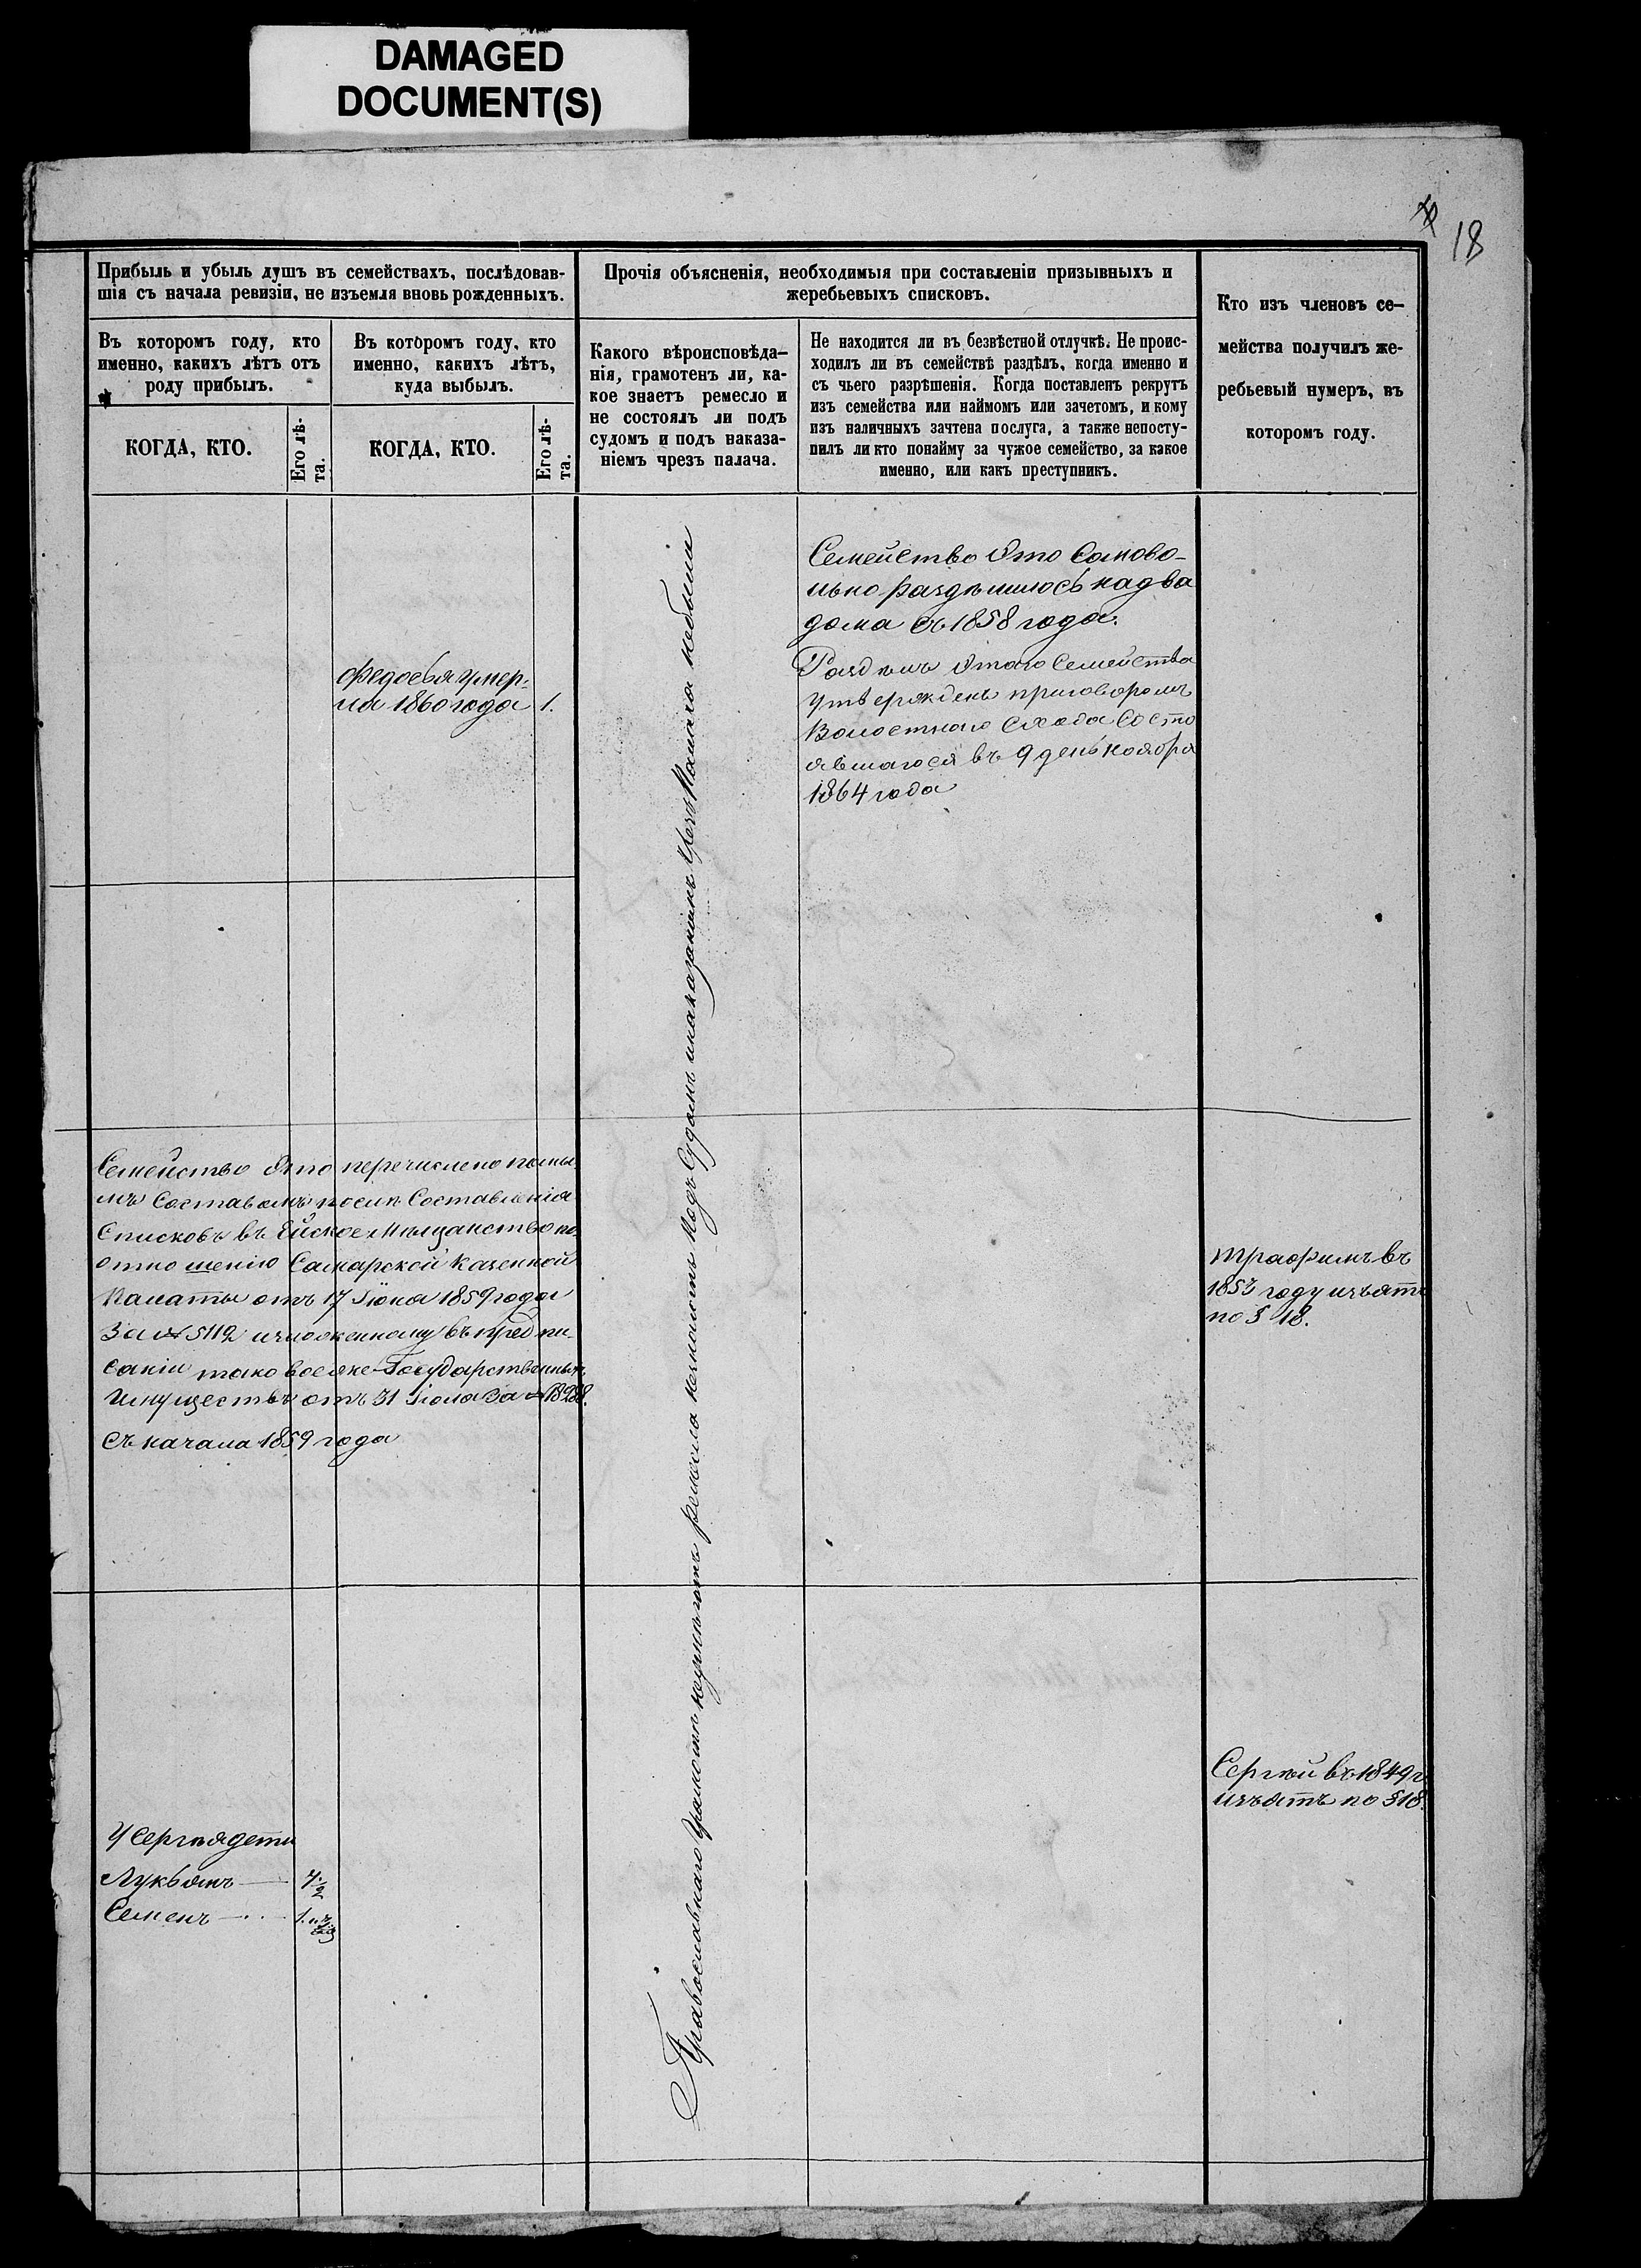 DAMAGED
DOCUMENT(S)
18
Прибыль и убыль душъ въ семействахъ, послѣдовав-
шія съ начала ревизіи, не изъемля вновь рожденныхъ.
Въ которомъ году, кто
именно, какихъ лѣтъ отъ
роду прибылъ.
КОГДА, КТО.
Его лѣ-
та.
Въ которомъ году, кто
именно, какихъ лѣтъ,
куда выбылъ.
КОГДА, КТО.
Его лѣ-
та.
Прочія объясненія, необходимыя при составленіи призывныхъ и
жеребьевыхъ списковъ.
Какого вѣроисповѣда-
нія, грамотенъ ли, ка-
кое знаетъ ремесло и
не состоялъ ли подъ
судомъ и подъ наказа-
ніемъ чрезъ палача.
Не находится ли въ безвѣстной отлучкѣ. Не проис-
ходилъ ли въ семействѣ раздѣлъ, когда именно и
съ чьего разрѣшенія. Когда поставленъ рекрутъ
изъ семейства или наймомъ или зачетомъ, и кому
изъ наличныхъ зачтена послуга, а также непосту-
пилъ ли кто понайму за чужое семейство, за какое
именно, или какъ преступникъ.
Кто изъ членовъ се-
мейства получилъ же-
ребьевый нумеръ, въ
которомъ году.
Федосья умер-
ла 1860 года 1.
Семейство Это Самово-
льно раздѣлилось на два
дома съ 1858 года.
Раздѣлъ Этаго Семейства
Утвержденъ приговоромъ
Волостнаго Схода Состо
явшагося въ 9 день ноября
1864 года
Православнаго Грамотѣ неумѣютъ ремесла незнаютъ Подъ Судомъ инаказанiемъ чрезъ Палача небыли
Семейство Это перечислено полны-
мъ Составомъ послѣ Составленія
Списковъ въ Ейское Мѣщанство по
отношенію Самарской Казенной
Палаты отъ 17 Іюня 1859 года
За № 5112 изложенному въ предпи-
саніи таковое же Государственныхъ
Имуществъ отъ 31 Іюля За № 18288.
Съ начала 1859 года
Трафимъ въ
1853 году изъятъ
по § 18.
Сергѣй въ 1849 г
изъятъ по § 18.
У Сергѣя дети
Лукьянъ
Семенъ